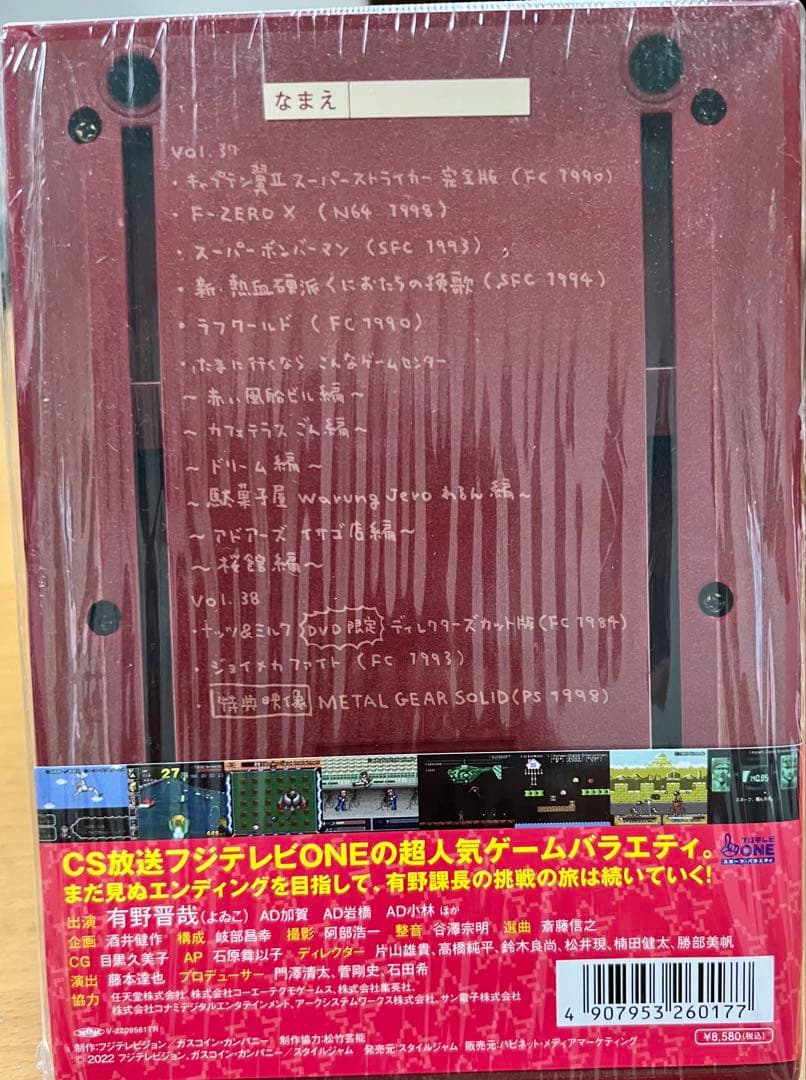 なまえ
Vol. 37
・キャプテン翼Ⅱ スーパーストライカー 完全版 (FC 1990)
・F-ZERO X (N64 1998)
・スーパーボンバーマン (SFC 1993)
・新・熱血硬派くにおたちの挽歌 (SFC 1994)
・ラフワールド (FC 1990)
・たまに行くなら こんなゲームセンター
～赤い風船ビル編～
～カフェテラス ごん編～
～ドリーム編～
～駄菓子屋 Warung Jero わるん編～
～アドアーズ イサゴ店編～
～桜館編～
Vol. 38
・ナッツ&ミルク DVD限定 ディレクターズカット版 (FC 1984)
・ジョイメカファイト (FC 1993)
・特典映像 METAL GEAR SOLID (PS 1998)
27
140.85
CS放送フジテレビONEの超人気ゲームバラエティ。
フジテレビ
ONE
スポーツ・バラエティ
まだ見ぬエンディングを目指して、有野課長の挑戦の旅は続いていく!
出演 有野晋哉(よゐこ) AD加賀 AD岩橋 AD小林 ほか
企画 酒井健作 構成 岐部昌幸 撮影 阿部浩一 整音 谷澤宗明 選曲 斎藤信之
CG 目黒久美子 AP 石原舞以子 ディレクター 片山雄貴、高橋純平、鈴木良尚、松井現、楠田健太、勝部美帆
演出 藤本達也 プロデューサー 門澤清太、菅剛史、石田希
協力 任天堂株式会社、株式会社コーエーテクモゲームス、株式会社集英社、
株式会社コナミデジタルエンタテインメント、アークシステムワークス株式会社、サン電子株式会社
V-2209561TR
制作:フジテレビジョン/ガスコイン・カンパニー 制作協力:松竹芸能
© 2022 フジテレビジョン、ガスコイン・カンパニー/スタイルジャム 発売元:スタイルジャム 販売元:ハピネット・メディアマーケティング
4 907953 260177
¥8,580(税込)